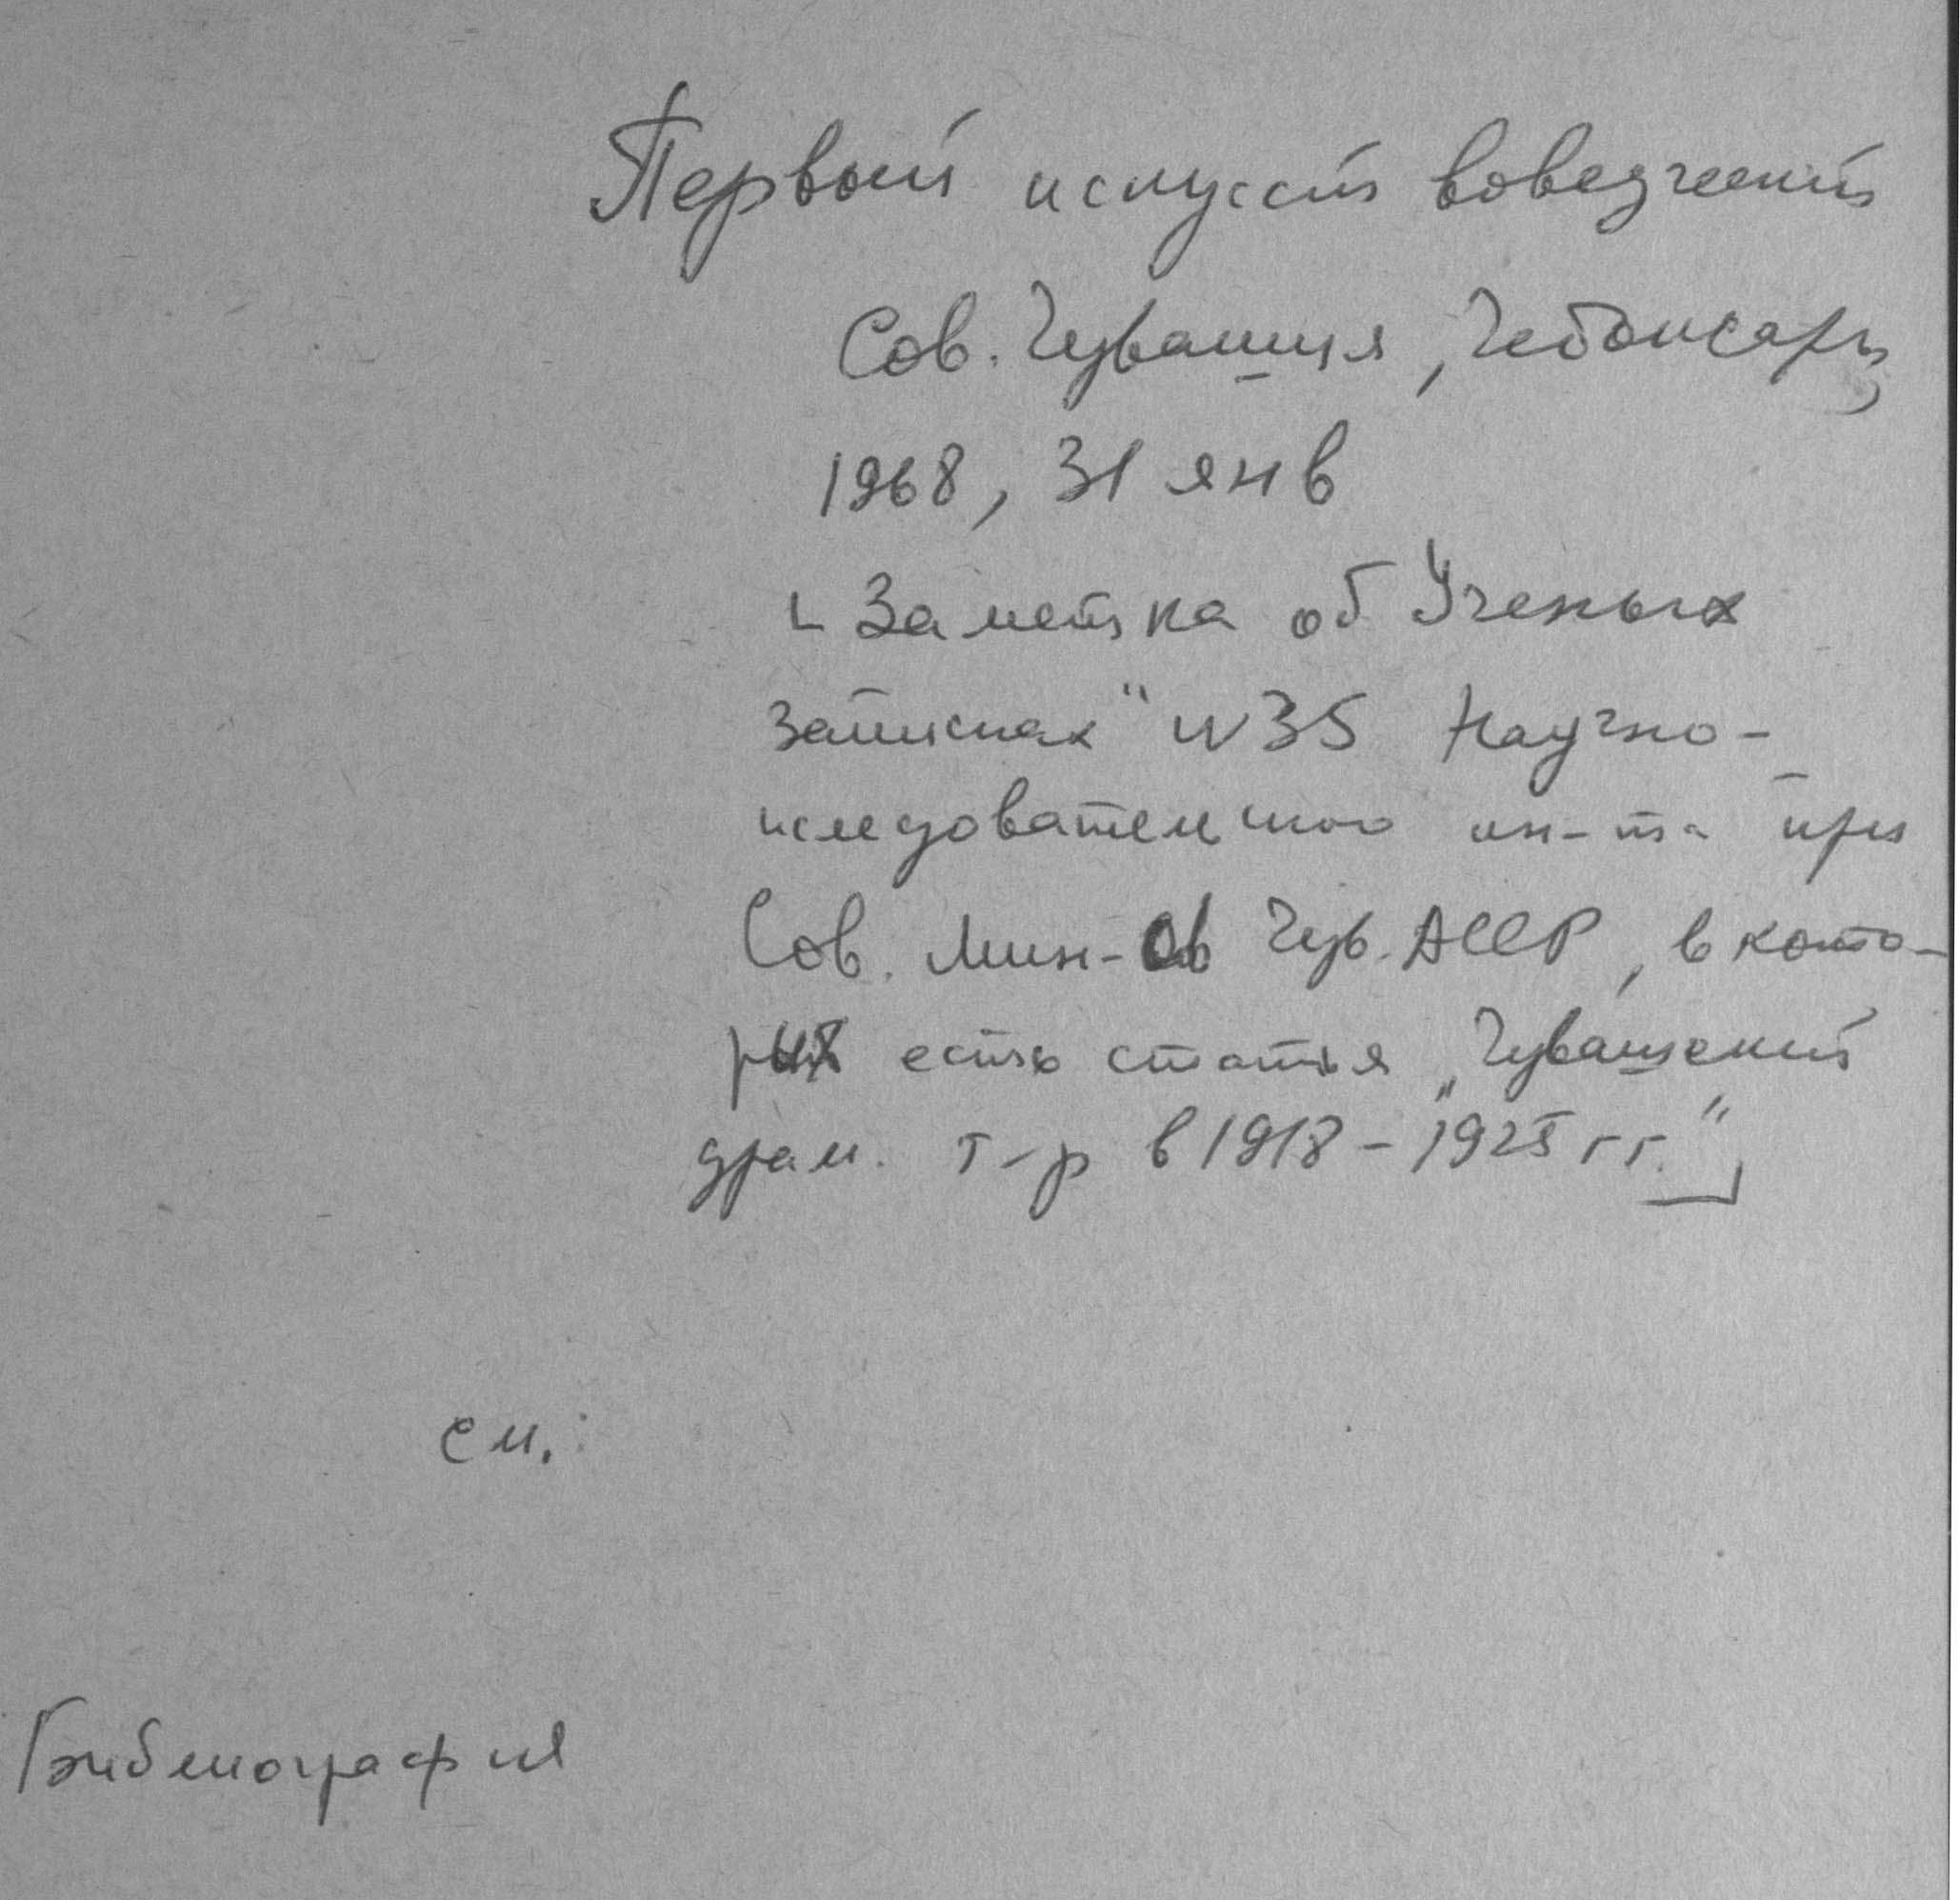 Первый искусствоведческий
Сов. Чувашия, Чебоксары
1968, 31 янв
[Заметка об Ученых
записках" N35 Научно-
исследовательского ин-та при
Сов. Мин-ов Чув. АССР, в кото-
рых есть статья „Чувашский
драм. т-р в 1918-1925 гг."]
см.:
Библиография